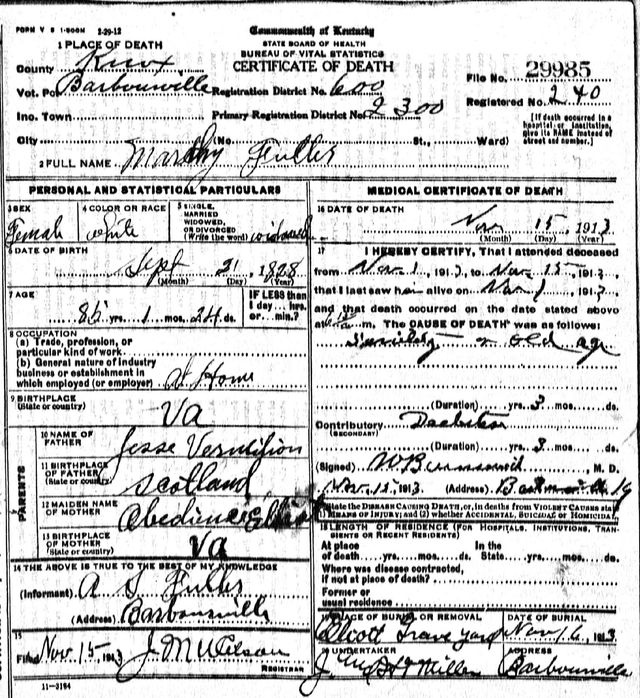 FORM V S 1-500M 2-29-12
Commonwealth of Kentucky
STATE BOARD OF HEALTH
BUREAU OF VITAL STATISTICS
CERTIFICATE OF DEATH
1 PLACE OF DEATH
County Knox
Vot. Pct Barbourville Registration District No. 600
File No. 29985
Inc. Town Primary Registration District No. 2300
Registered No. 240
City (No. St., Ward)
[If death occurred in a hospital or institution, give its NAME instead of street and number.]
2 FULL NAME Marthy Fuller
PERSONAL AND STATISTICAL PARTICULARS
3 SEX Female
4 COLOR OR RACE white
5 SINGLE, MARRIED WIDOWED, OR DIVORCED (Write the word) widowed
6 DATE OF BIRTH
Sept 21, 1828
(Month) (Day) (Year)
7 AGE
85 yrs. 1 mos. 24 ds.
IF LESS than 1 day, hrs. or min.?
8 OCCUPATION
(a) Trade, profession, or particular kind of work
(b) General nature of industry business or establishment in which employed (or employer) At Home
9 BIRTHPLACE
(State or country) Va
PARENTS
10 NAME OF FATHER Jesse Vermilion
11 BIRTHPLACE OF FATHER (State or country) Scotland
12 MAIDEN NAME OF MOTHER Obedince
13 BIRTHPLACE OF MOTHER (State or country) Va
14 THE ABOVE IS TRUE TO THE BEST OF MY KNOWLEDGE
(Informant) A S Fuller
(Address) Barbourville
15
Filed Nov. 15, 1913 J. M. Wilson
REGISTRAR
11-3184
MEDICAL CERTIFICATE OF DEATH
16 DATE OF DEATH
Nov 15, 1913
(Month) (Day) (Year)
17 I HEREBY CERTIFY, That I attended deceased
from Nov 1, 1913, to Nov 15, 1913,
that I last saw h alive on Nov 1, 1913,
and that death occurred on the date stated above
at m. The CAUSE OF DEATH was as follows:
old age
(Duration) yrs. 3 mos. ds.
Contributory
(SECONDARY)
(Duration) yrs. 3 mos. ds.
(Signed) M. D.
Nov. 15, 1913 (Address)
State the DISEASE CAUSING DEATH, or, in deaths from VIOLENT CAUSES state
MEANS OF INJURY; and (2) whether ACCIDENTAL, SUICIDAL or HOMICIDAL.
18 LENGTH OF RESIDENCE (FOR HOSPITALS, INSTITUTIONS, TRANSIENTS OR RECENT RESIDENTS)
At place of death yrs. mos. ds. In the State yrs. mos. ds.
Where was disease contracted, if not at place of death?
Former or usual residence
19 PLACE OF BURIAL OR REMOVAL Grave yard
DATE OF BURIAL Nov 16, 1913
20 UNDERTAKER Miller
ADDRESS Barbourville